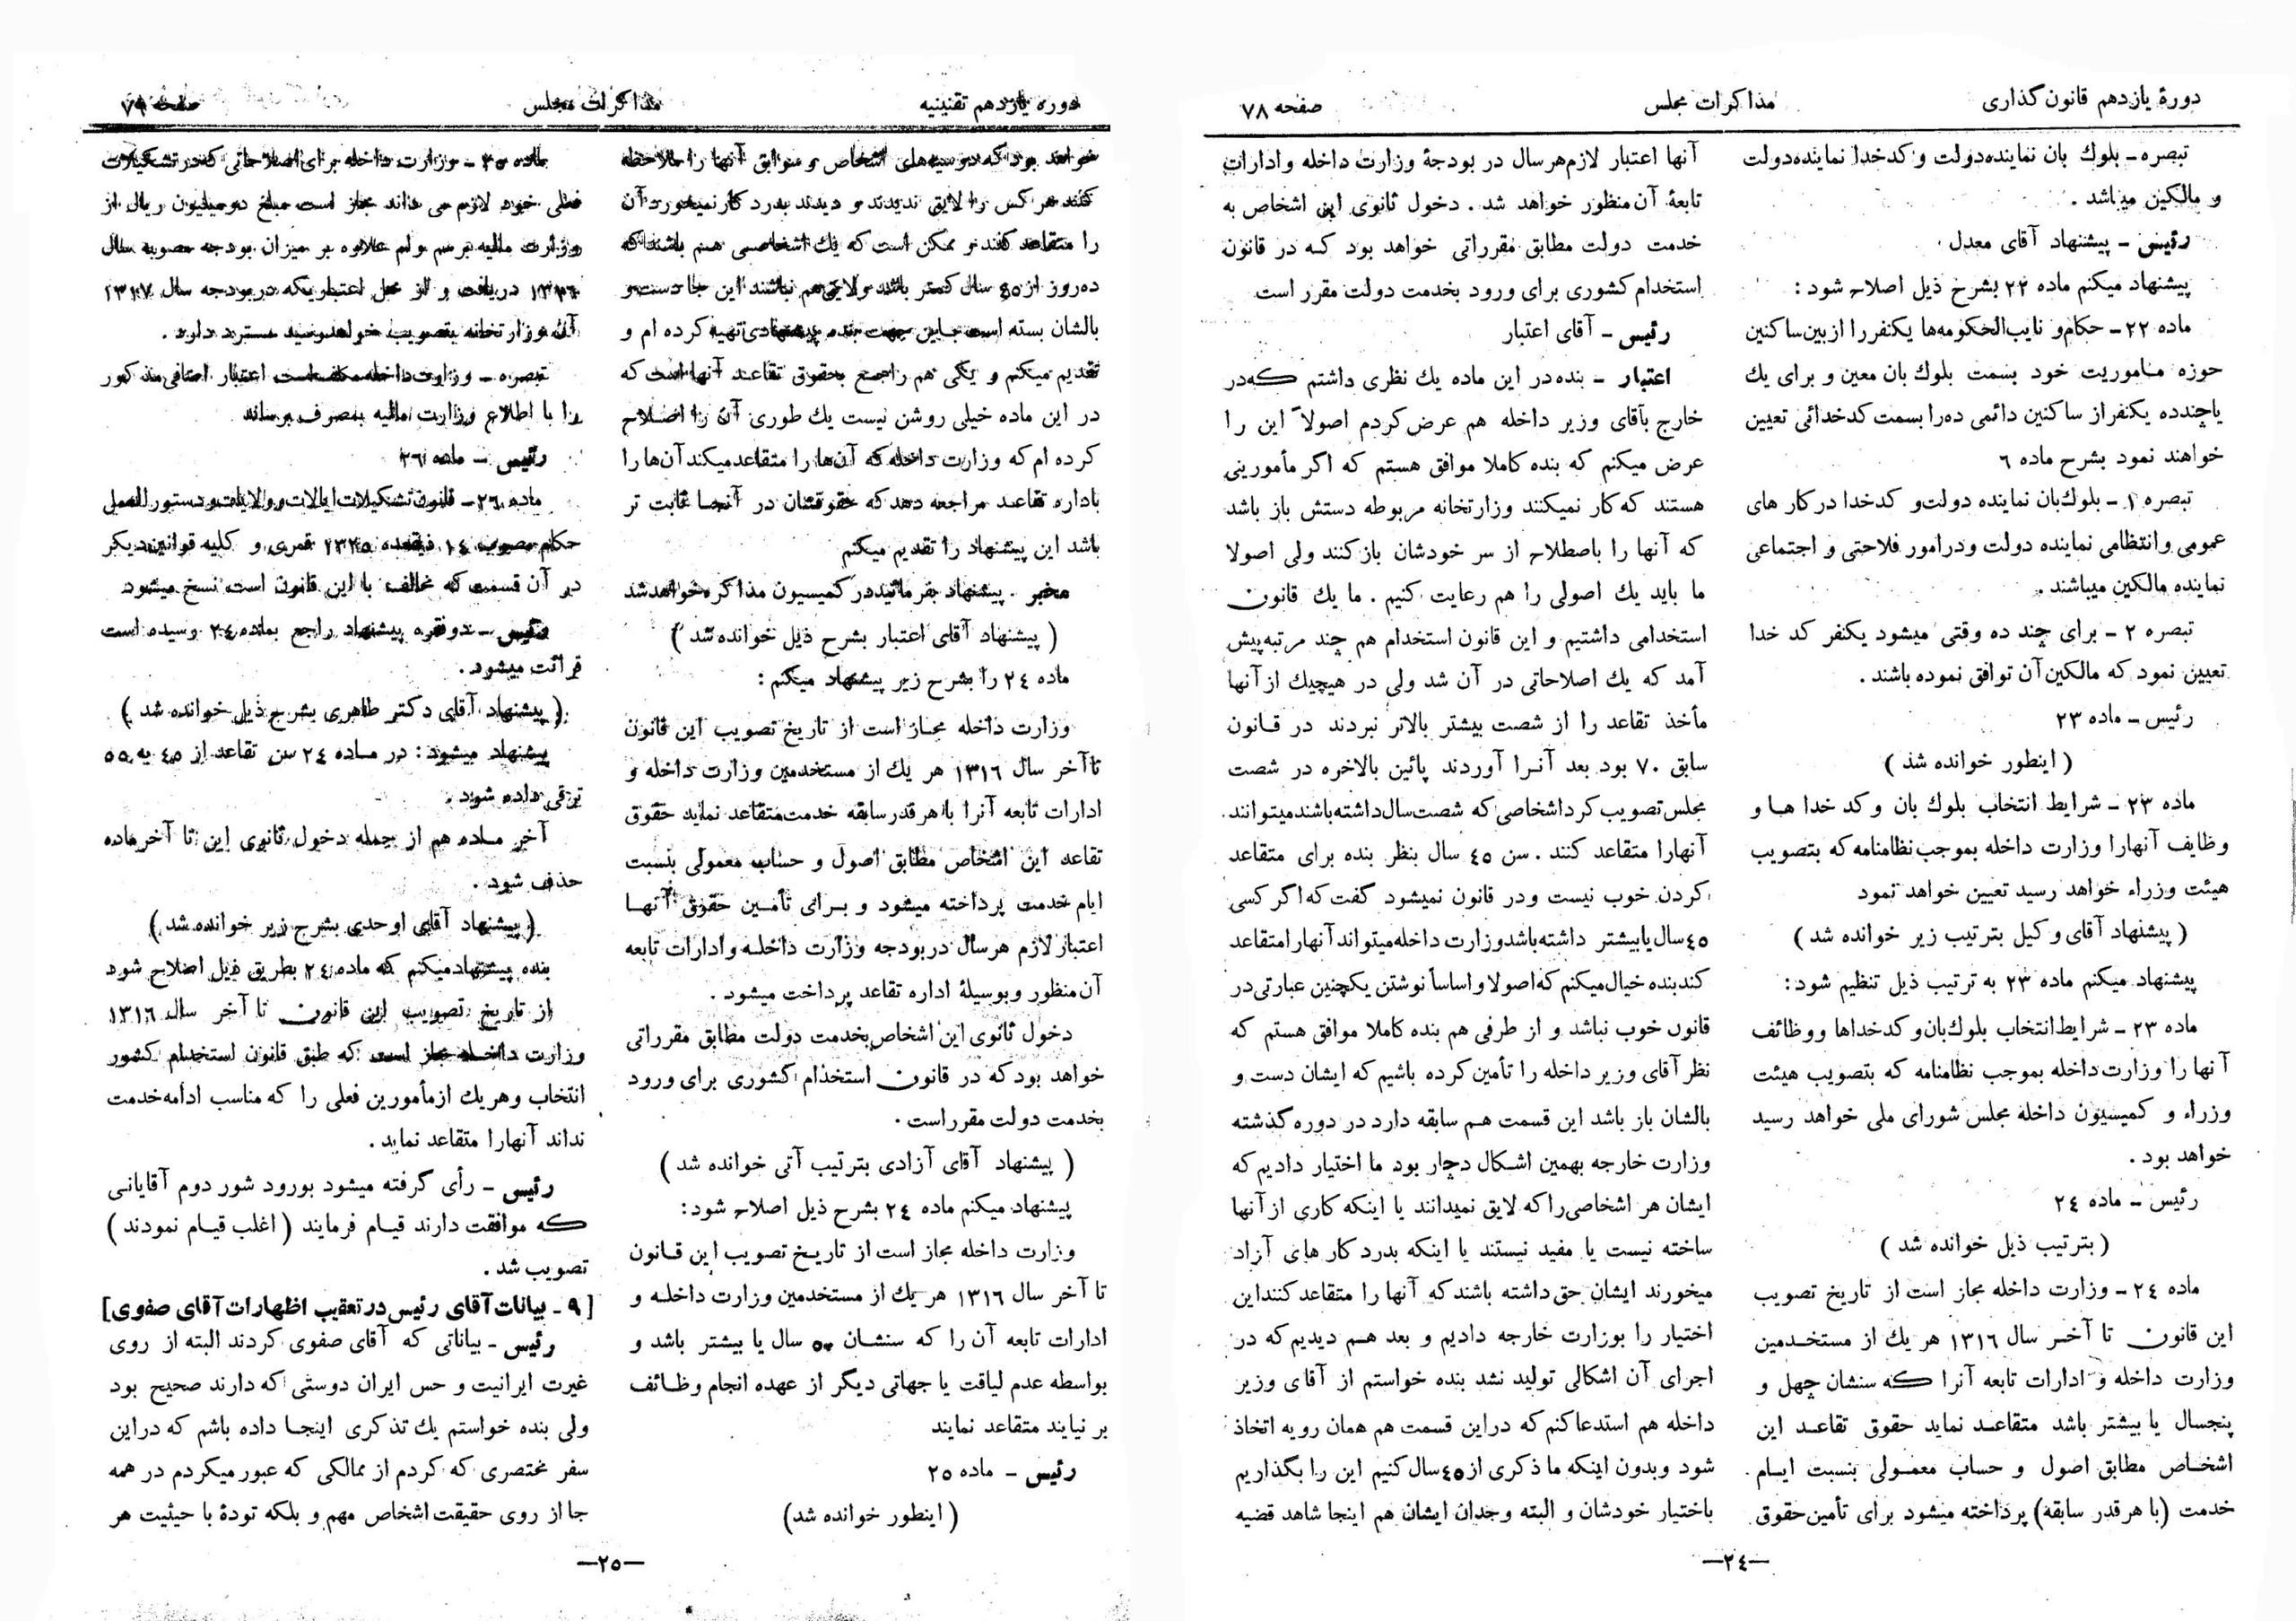 دورهٔ یازدهم قانون گذاری
مذاکرات مجلس
صفحه ۷۸
تبصره ـ بلوك بان نماینده دولت و کدخدا نماینده دولت
و مالکین میباشد .
رئیس ـ پیشنهاد آقای معدل .
پیشنهاد میکنم ماده ۲۲ بشرح ذیل اصلاح شود :
ماده ۲۲ ـ حکام و نایب‌الحکومه‌ها یکنفر را از بین ساکنین
حوزه مأموریت خود بسمت بلوك بان معین و برای یك
یا چند ده یکنفر از ساکنین دائمی ده را بسمت کدخدائی تعیین
خواهند نمود بشرح ماده ۶
تبصره ۱ ـ بلوك بان نماینده دولت و کدخدا در کار های
عمومی و انتظامی نماینده دولت و در امور فلاحتی و اجتماعی
نماینده مالکین میباشند .
تبصره ۲ ـ برای چند ده وقتی میشود یکنفر کد خدا
تعیین نمود که مالکین آن توافق نموده باشند .
رئیس ـ ماده ۲۳
( اینطور خوانده شد )
ماده ۲۳ ـ شرایط انتخاب بلوك بان و کد خدا هـا و
وظایف آنها را وزارت داخله بموجب نظامنامه که بتصویب
هیئت وزراء خواهد رسید تعیین خواهد نمود
( پیشنهاد آقای وکیل بترتیب زیر خوانده شد )
پیشنهاد میکنم ماده ۲۳ به ترتیب ذیل تنظیم شود :
ماده ۲۳ ـ شرایط انتخاب بلوك بان و کدخداها و وظائف
آنها را وزارت داخله بموجب نظامنامه که بتصویب هیئت
وزراء و کمیسیون داخله مجلس شورای ملی خواهد رسید
خواهد بود .
رئیس ـ ماده ۲٤
( بترتیب ذیل خوانده شد )
ماده ۲٤ ـ وزارت داخله مجاز است از تاریخ تصویب
این قانون تا آخـر سال ۱۳۱٦ هر یك از مستخـدمین
وزارت داخله و ادارات تابعه آنرا که سنشان چهل و
پنجسال یا بیشتر باشد متقاعـد نماید حقوق تقاعـد این
اشخـاص مطابق اصول و حساب معمـولی بنسبت ایـام
خدمت (با هر قدر سابقه) پرداخته میشود برای تأمین حقوق
آنها اعتبار لازم هر سال در بودجهٔ وزارت داخله و ادارات
تابعهٔ آن منظور خواهد شد . دخول ثانوی این اشخاص به
خدمت دولت مطابق مقرراتی خواهد بود کـه در قانون
استخدام کشوری برای ورود بخدمت دولت مقرر است
رئیس ـ آقای اعتبار
اعتبار ـ بنده در این ماده یك نظری داشتم که در
خارج بآقای وزیر داخله هم عرض کردم اصولاً این را
عرض میکنم که بنده کاملا موافق هستم که اگر مأمورینی
هستند که کار نمیکنند وزارتخانه مربوطه دستش باز باشد
که آنها را باصطلاح از سر خودشان باز کنند ولی اصولا
ما باید یك اصولی را هم رعایت کنیم . ما یك قانون
استخدامی داشتیم و این قانون استخدام هم چند مرتبه پیش
آمد که یك اصلاحاتی در آن شد ولی در هیچیك از آنها
مأخذ تقاعد را از شصت بیشتر بالاتر نبردند در قـانون
سابق ۷۰ بود بعد آنـرا آوردند پائین بالاخره در شصت
مجلس تصویب کرد اشخاصی که شصت سال داشته باشند میتوانند
آنها را متقاعد کنند . سن ٤٥ سال بنظر بنده برای متقاعد
کردن خوب نیست و در قانون نمیشود گفت که اگر کسی
٤٥ سال یا بیشتر داشته باشد وزارت داخله میتواند آنها را متقاعد
کند بنده خیال میکنم که اصولا و اساساً نوشتن یکچنین عبارتی در
قانون خوب نباشد و از طرفی هم بنده کاملا موافق هستم که
نظر آقای وزیر داخله را تأمین کرده باشیم که ایشان دست و
بالشان باز باشد این قسمت هـم سابقه دارد در دوره گذشته
وزارت خارجه بهمین اشـکال دچار بود ما اختیار دادیم که
ایشان هر اشخاصی را که لایق نمیدانند یا اینکه کاری از آنها
ساخته نیست یا مفید نیستند یا اینکه بدرد کار های آزاد
میخورند ایشان حق داشته باشند که آنها را متقاعد کنند این
اختیار را بوزارت خارجه دادیم و بعد هـم دیدیم که در
اجرای آن اشکالی تولید نشد بنده خواستم از آقای وزیر
داخله هم استدعا کنم که در این قسمت هم همان رویه اتخاذ
شود و بدون اینکه ما ذکری از ٤٥ سال کنیم این را بگذاریم
باختیار خودشان و البته وجدان ایشان هم اینجا شاهد قضیه
—۲٤—
دوره یازدهم تقنینیه
مذاکرات مجلس
صفحه ۷۹
خواهد بود که دوسیه‌های اشخاص و سوابق آنها را ملاحظه
کنند هر کس را لایق ندیدند و دیدند بدرد کار نمیخورد آن
را متقاعد کنند و ممکن است که یك اشخاصی هـم باشند که
ده روز از ٤٥ سال کمتر باشد و لایق هم نباشند این جا دست و
بالشان بسته است باین جهت بنده پیشنهادی تهیه کرده ام و
تقدیم میکنم و یکی هم راجع بحقوق تقاعـد آنها است که
در این ماده خیلی روشن نیست یك طوری آن را اصـلاح
کرده ام که وزارت داخله که آن‌ها را متقاعد میکند آن‌ها را
باداره تقاعـد مراجعه دهد که حقوقشان در آنجـا ثابت تر
باشد این پیشنهاد را تقدیم میکنم
مخبر ـ پیشنهاد بفرمائید در کمیسیون مذاکره خواهد شد
( پیشنهاد آقای اعتبار بشرح ذیل خوانده شد )
ماده ۲٤ را بشرح زیر پیشنهاد میکنم :
وزارت داخله مجـاز است از تاریخ تصویب این قانون
تا آخر سال ۱۳۱٦ هر یك از مستخدمین وزارت داخله و
ادارات تابعه آنرا با هر قدر سابقه خدمت متقاعد نماید حقوق
تقاعد این اشخاص مطابق اصول و حساب معمولی بنسبت
ایام خدمت پرداخته میشود و بـرای تأمـین حقوق آنهـا
اعتبار لازم هر سال در بودجه وزارت داخلـه و ادارات تابعه
آن منظور و بوسیلهٔ اداره تقاعد پرداخت میشود .
دخول ثانوی این اشخاص بخدمت دولت مطابق مقرراتی
خواهد بود که در قانون استخدام کشوری برای ورود
بخدمت دولت مقرر است .
( پیشنهاد آقای آزادی بترتیب آتی خوانده شد )
پیشنهاد میکنم ماده ۲٤ بشرح ذیل اصلاح شود :
وزارت داخله مجاز است از تاریـخ تصویب این قـانون
تا آخر سال ۱۳۱٦ هر یك از مستخدمین وزارت داخلـه و
ادارات تابعه آن را که سنشـان ۵۰ سال یا بیشتر باشد و
بواسطه عدم لیاقت یا جهاتی دیگر از عهده انجام وظـائف
بر نیایند متقاعد نمایند
رئیس ـ ماده ۲٥
( اینطور خوانده شد)
ماده ۲٥ ـ وزارت داخله برای اصلاحاتی که در تشکیلات
فعلی خود لازم می داند مجاز است مبلغ دو میلیون ریال از
وزارت مالیه برسم وام علاوه بر میزان بودجه مصوبه سال
۱۳۱٦ دریافت و از محل اعتباریکه در بودجه سال ۱۳۱۷
آن وزارتخانه بتصویب خواهد رسید مسترد دارد .
تبصره ـ وزارت داخله مکلف است اعتبار اضافی مذکور
را با اطلاع وزارت مالیه بمصرف برساند
رئیس ـ ماده ۲٦
ماده ۲٦ ـ قانون تشکیلات ایالات و ولایات و دستورالعمل
حکام مصوب ۱٤ ذیقعده ۱۳۲٥ قمری و کلیه قوانین دیگر
در آن قسمت که مخالف با این قانون است نسخ میشود
رئیس ـ دو فقره پیشنهاد راجع بماده ۲٤ رسیده است
قرائت میشود .
( پیشنهاد آقای دکتر طاهری بشرح ذیل خوانده شد )
پیشنهاد میشود : در مـاده ۲٤ سن تقاعد از ٤٥ به ٥٥
ترقی داده شود .
آخر مـاده هم از جمله دخول ثانوی این تا آخر ماده
حذف شود .
(پیشنهاد آقای اوحدی بشرح زیر خوانده شد)
بنده پیشنهاد میکنم که ماده ۲٤ بطریق ذیل اصلاح شود
از تاریخ تصویب این قانون تا آخر سال ۱۳۱٦
وزارت داخـله مجاز است که طبق قانون استخدام کشور
انتخاب و هر یك از مأمورین فعلی را که مناسب ادامه خدمت
نداند آنها را متقاعد نماید .
رئیس ـ رأی گرفته میشود بورود شور دوم آقایانی
که موافقت دارند قیـام فرمایند ( اغلب قیـام نمودند )
تصویب شد .
[ ۹ ـ بیانات آقای رئیس در تعقیب اظهارات آقای صفوی ]
رئیس ـ بیاناتی که آقای صفوی کردند البته از روی
غیرت ایرانیت و حس ایران دوستی که دارند صحیح بود
ولی بنده خواستم یك تذکری اینجـا داده باشم که در این
سفر مختصری که کردم از ممالکی که عبور میکردم در همه
جا از روی حقیقت اشخاص مهم و بلکه تودهٔ با حیثیت هر
—۲٥—